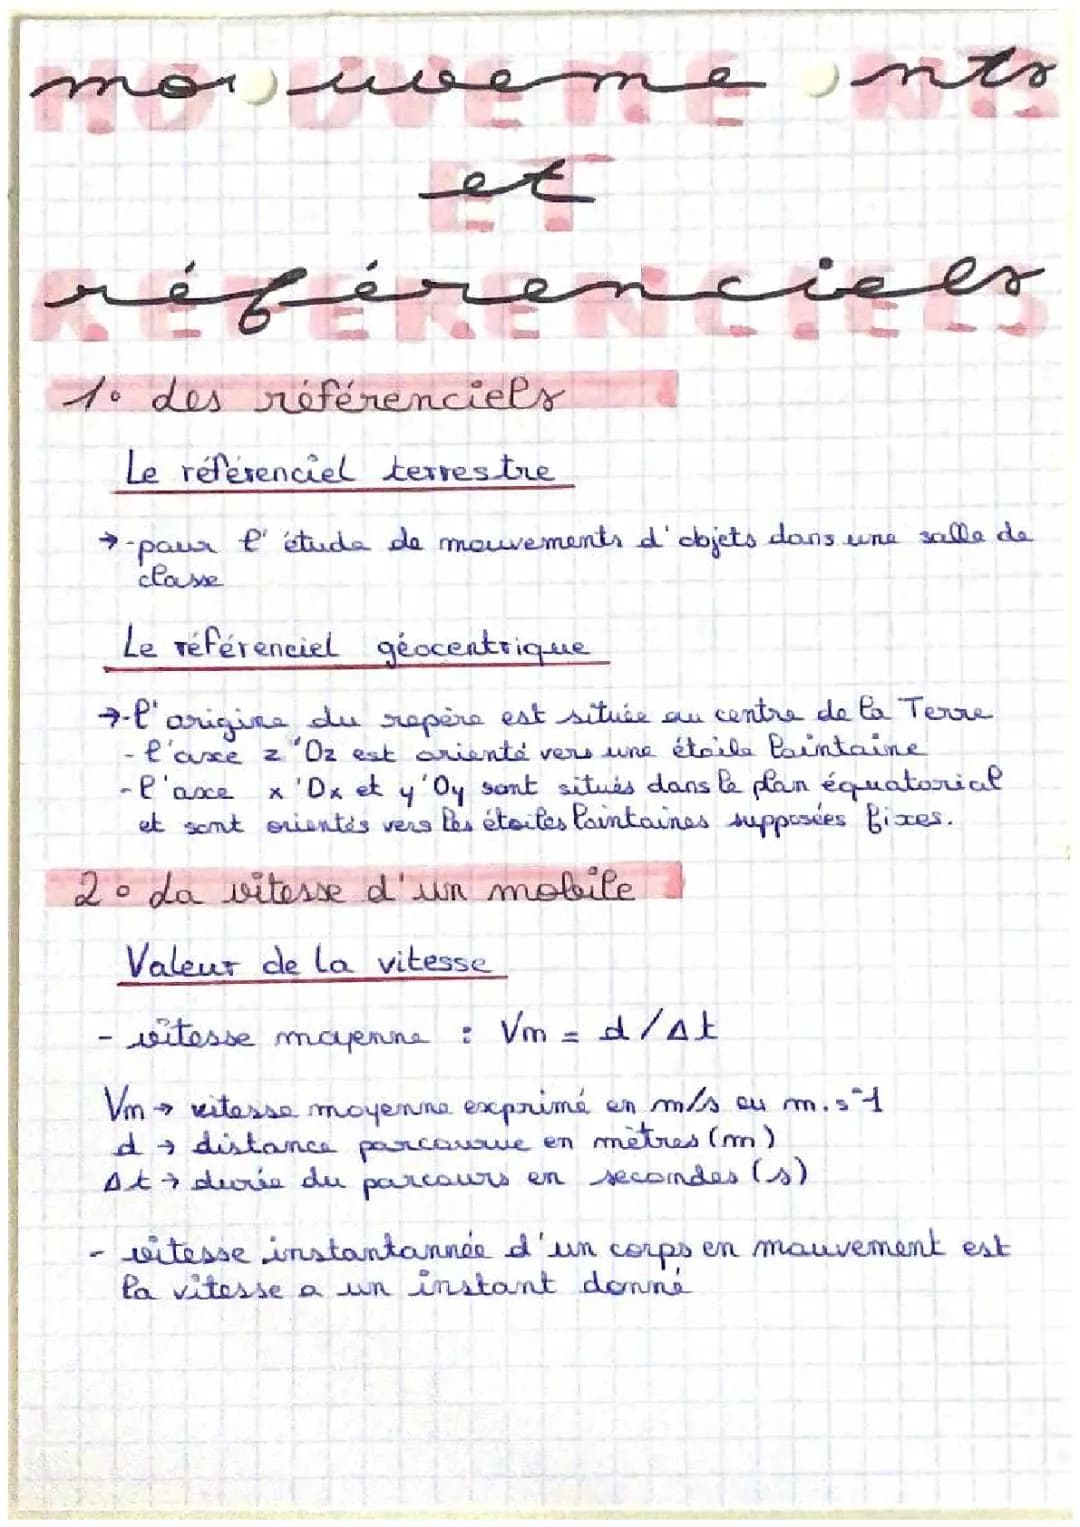 mouvements
et
référenciels
1° des référenciels
Le référenciel terrestre
→ - pour l'étude de mouvements d'objets dans une salle de
classe
Le référenciel géocentrique
→ - l'origine du repère est située au centre de la Terre
- l'axe z'Oz est orienté vers une étoile lointaine
- l'axe x'Ox et y'Oy sont situés dans le plan équatorial
et sont orientés vers les étoiles lointaines supposées fixes.
2° La vitesse d'un mobile
Valeur de la vitesse
- vitesse moyenne : Vm = d/Δt
Vm → vitesse moyenne exprimé en m/s ou m.s-1
d → distance parcourue en mètres (m)
Δt → durée du parcours en secondes (s)
- vitesse instantannée d'un corps en mouvement est
la vitesse a un instant donné